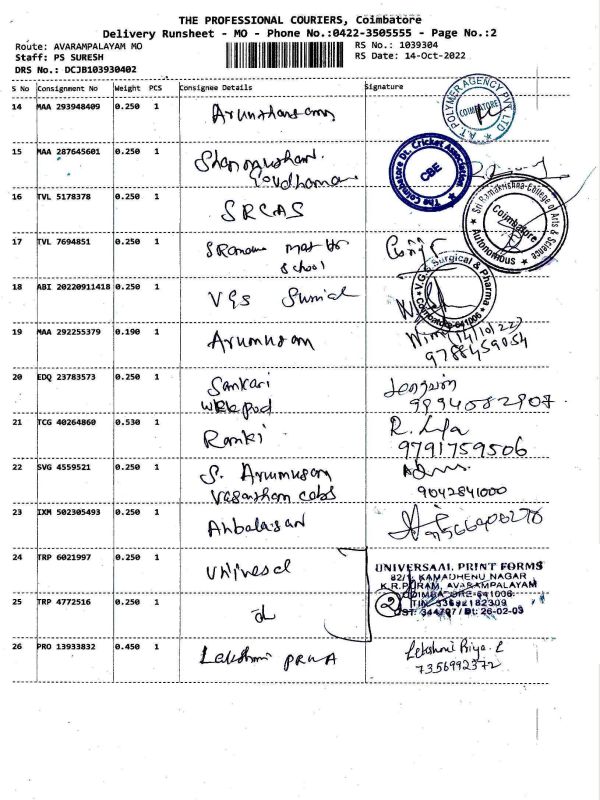 THE PROFESSIONAL COURIERS, Coimbatore
Delivery Runsheet - MO - Phone No.:0422-3505555 - Page No.:2
Route: AVARAMPALAYAM MO
RS No.: 1039304
Staff: PS SURESH
RS Date: 14-Oct-2022
DRS No.: DCJB103930402
S No Consignment No Weight PCS Consignee Details Signature
14 MAA 293948409 0.250 1
A.T. POLYMER AGENCY PVT. LTD ★ COIMBATORE
15 MAA 287645601 0.250 1
The Coimbatore Dt. Cricket Association CBE
16 TVL 5178378 0.250 1 SRCAS
Sri Ramakrishna College of Arts & Science Autonomous Coimbatore
17 TVL 7694891 0.250 1
School
18 ABI 20220911418 0.250 1 VGS
V.G.S Surgical & Pharma Coimbatore-641006
19 MAA 292255379 0.190 1 Arumugam
(14/10/22)
9788459054
20 EDQ 23783573 0.250 1 Sankari
9994082907
21 TCG 40264860 0.530 1 Ranki
9791759506
22 SVG 4559521 0.250 1 S. Arumugam
Vasantham cabs 9042841000
23 IXM 502305493 0.250 1
24 TRP 6021997 0.250 1
UNIVERSAAL PRINT FORMS
82/1, KAMADHENU NAGAR
K.R.PURAM, AVARAMPALAYAM
COIMBATORE-641006
25 TRP 4772516 0.250 1
2
TIN: 33692182309
CST: 344707 / Dt: 26-02-03
26 PRO 13933832 0.450 1 Lakshmi PRIYA
Lekshmi Priya. L
7356992372